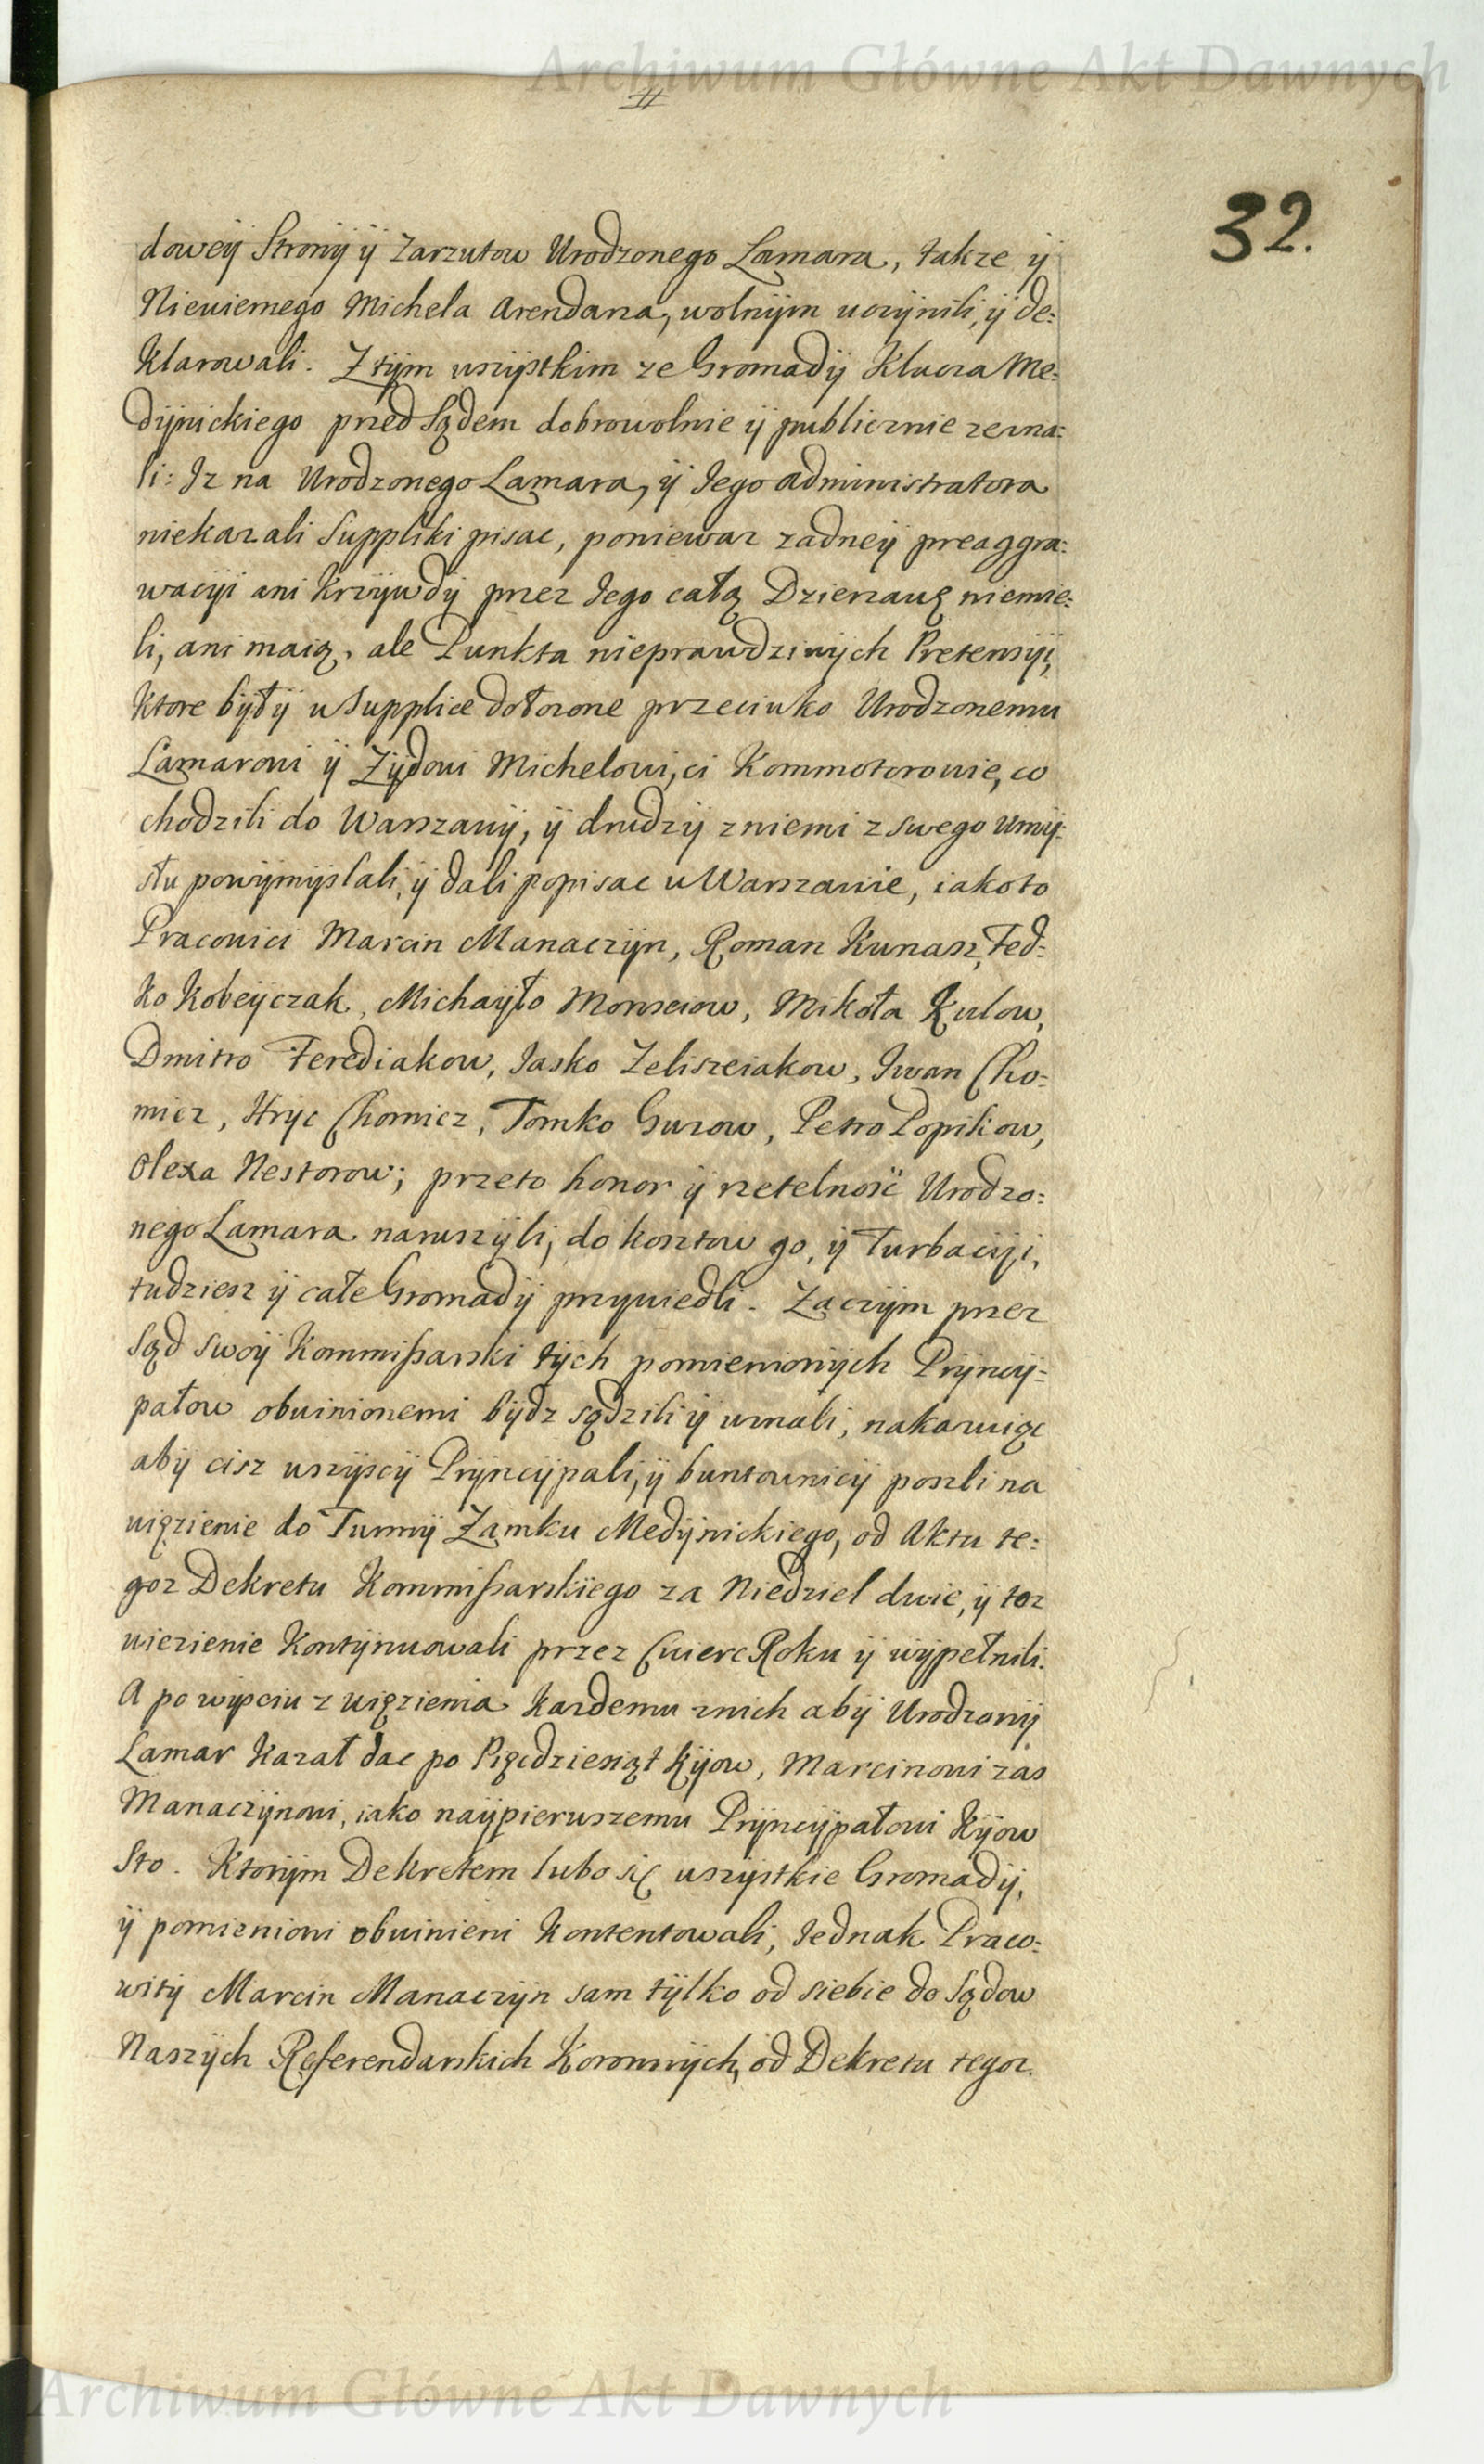 Archiwum Główne Akt Dawnych
32.
doweÿ Stronÿ ÿ Zarzutow Urodzonego Lamara, takze ÿ
Niewiernego Michela Arendarza, wolnÿm uczÿnili, ÿ de:
klarowali. Z tÿm wszÿstkim ze Gromadÿ Klucza Me:
dÿnickiego przed Sądem dobrowolnie ÿ publicznie zezna:
li: Iz na Urodzonego Lamara, ÿ Jego Administratora
niekazali Suppliki pisac, poniewaz zadneÿ preaggra:
wacÿi ani Krzÿwdÿ przez Jego całą Dzierzawę niemie:
li, ani maią, ale Punkta nieprawdziwÿch Pretensÿi,
Ktore bÿłÿ w Supplice dołozone przeciwko Urodzonemu
Lamarowi ÿ Zÿdowi Michelowi, ci Kommotorowie, co
chodzili do Warszawÿ, ÿ drudzÿ z niemi z swego umÿ:
słu powÿmÿslali, ÿ dali popisac w Warszawie, iako to
Pracowici Marcin Manaczÿn, Roman Kunasz, Fed:
ko Kobeÿczak, Michaÿło Monsciow, Mikoła Kulow,
Dmitro Ferediakow, Jasko Zeliszciakow, Iwan Cho:
micz, Hrÿc Chomicz, Tomko Gurow, Petro Popikow,
Olexa Nestorow; przeto honor ÿ rzetelność Urodzo:
nego Lamara naruszÿli, do kosztow go, ÿ Turbacÿi,
tudziesz ÿ całe Gromadÿ przywiedli. Zaczÿm przez
Sąd swoÿ Kommissarski tÿch pomienionÿch Prÿncÿ:
pałow obwinionemi bÿdz sądzili ÿ uznali, nakazuiąc
abÿ cisz wszÿscÿ Prÿncÿpali, ÿ buntownicÿ poszli na
więzienie do Turmÿ Zamku Medÿnickiego, od Aktu te:
goz Dekretu Kommissarskiego za Niedziel dwie, ÿ toz
wiezienie Kontÿnuowali przez Cwierc Roku ÿ wÿpełnili.
A po wÿsciu z więzienia kazdemu z nich abÿ Urodzonÿ
Lamar kazał dac po Pięcdziesiąt kÿow, Marcinowi zas
Manaczÿnowi, iako naÿpierwszemu Prÿncÿpałowi kÿow
Sto. Ktorÿm Dekretem lubo się wszÿstkie Gromadÿ,
ÿ pomienioni obwinieni kontentowali, Jednak Praco:
witÿ Marcin Manaczÿn sam tÿlko od siebie do Sądow
Naszÿch Referendarskich Koronnÿch, od Dekretu tegoz
Archiwum Główne Akt Dawnych